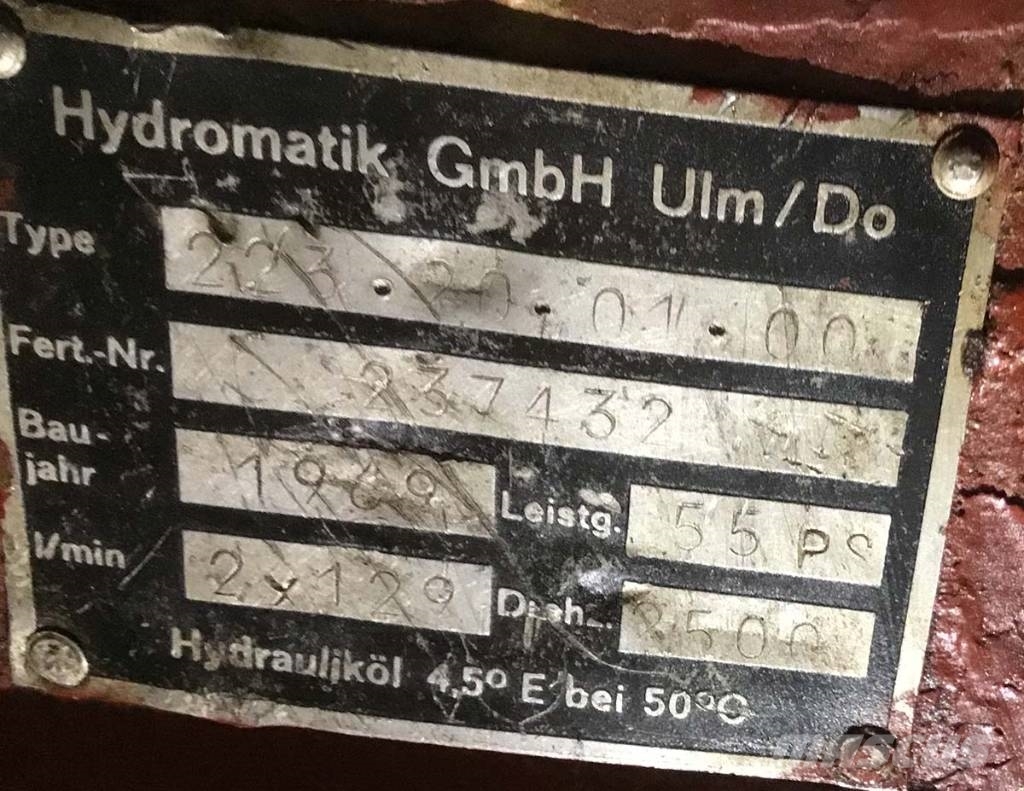 Hydromatik GmbH Ulm/Do
Type 223.20.01.00
Fert.-Nr. 237432
Bau-
jahr 1969 Leistg. 55 PS
l/min 2x129 Drehz. 2500
Hydrauliköl 4,5° E bei 50°C